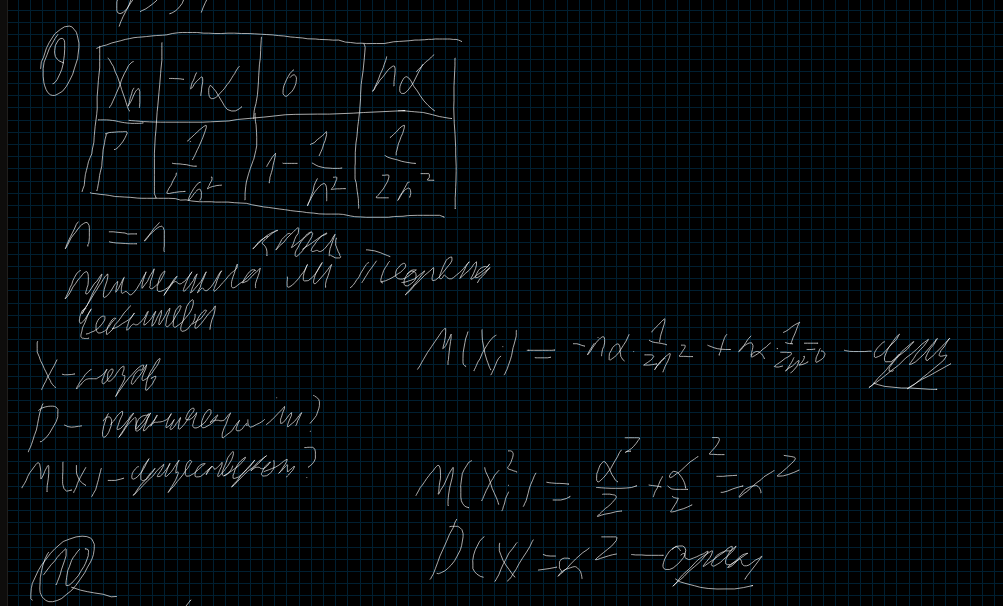 9
Xn -nα 0 nα
P 1/2n² 1-1/n² 1/2n²
n = n
применима ли теорема
Чебышева
X - незав
D - ограничены ли?
M(X) - существуют?
M(Xi) = -nα · 1/2n² + nα · 1/2n² = 0 - сущ
M(Xi²) = α²/2 + α²/2 = α²
D(X) = α² - огран
10